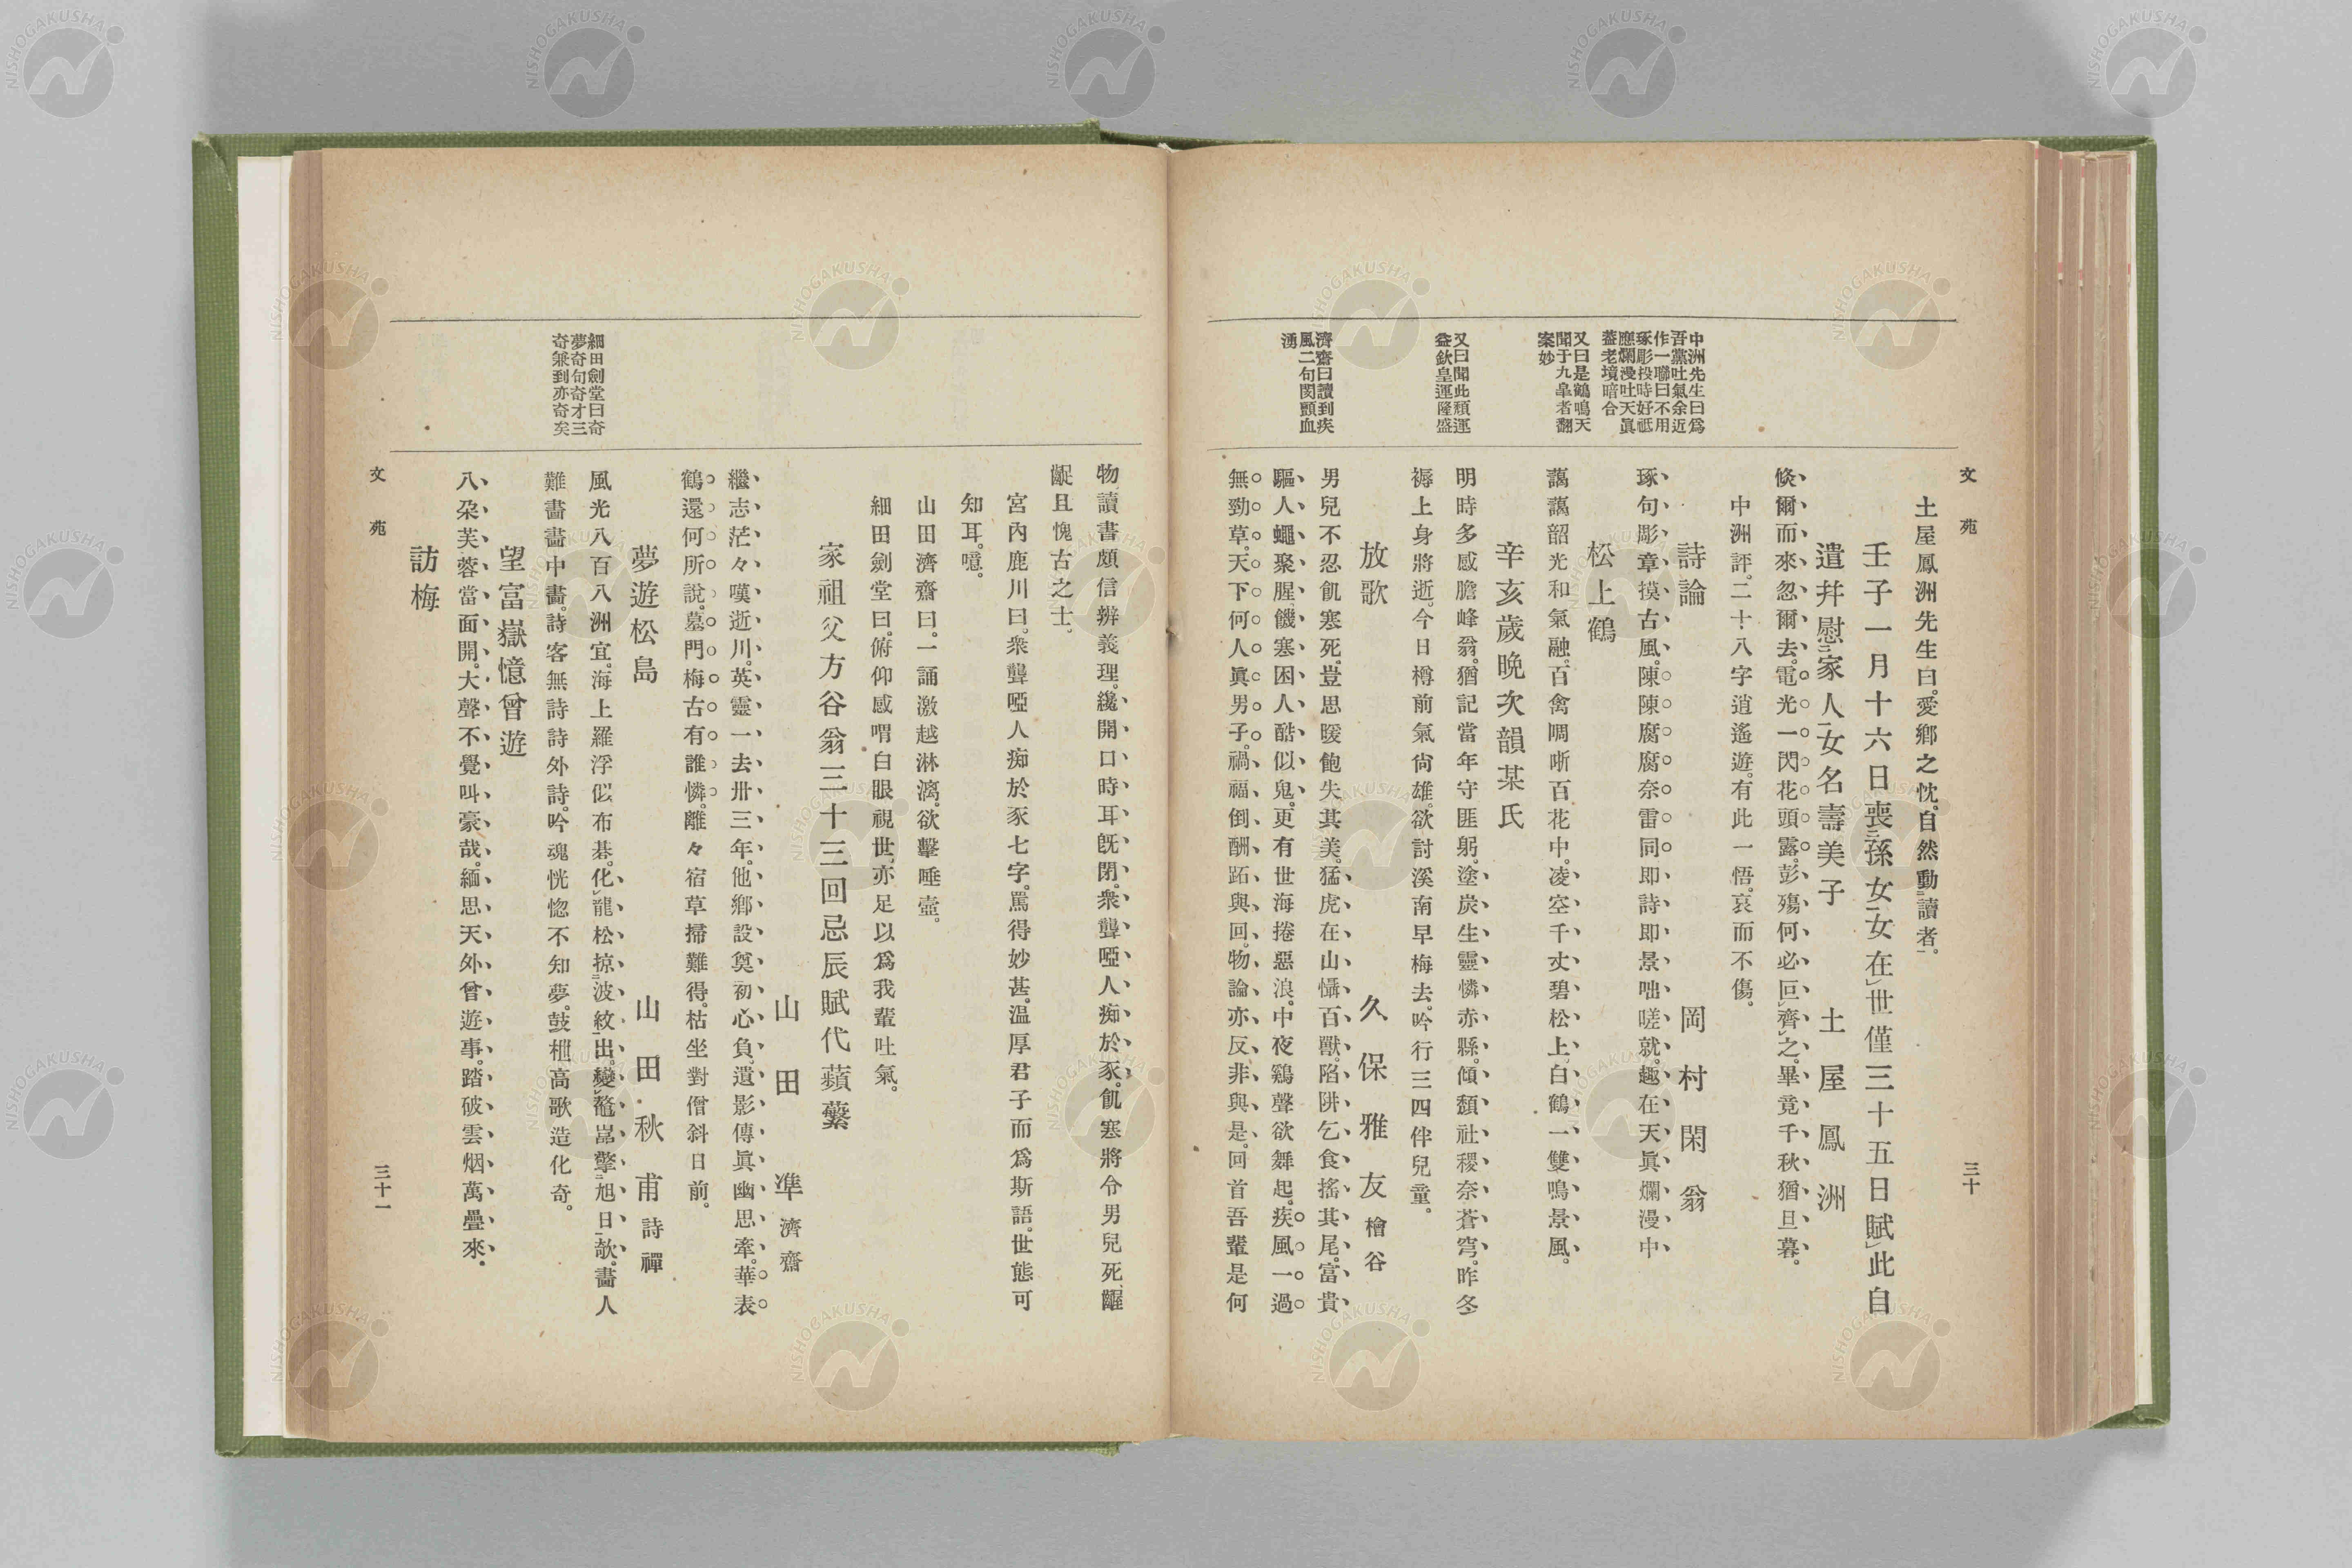 文苑
三十
土屋鳳洲先生曰。愛鄉之忱。自然動讀者。
壬子一月十六日喪孫女女在世僅三十五日賦此自
遣幷慰家人女名壽美子 土屋鳳洲
倏爾而來忽爾去。電光一閃花頭露。彭殤何必叵齊之。畢竟千秋猶旦暮。
中洲評。二十八字逍遙遊。有此一悟。哀而不傷。
詩論 岡村閑翁
琢句彫章摸古風。陳陳腐腐奈雷同。卽詩卽景咄嗟就。趣在天眞爛漫中
松上鶴
藹藹韶光和氣融。百禽啁哳百花中。凌空千丈碧松上。白鶴一雙鳴景風。
辛亥歲晩次韻某氏
明時多感膽峰翁。猶記當年守匪躬。塗炭生靈憐赤縣。傾頽社稷奈蒼穹。昨冬
褥上身將逝。今日樽前氣尙雄。欲討溪南早梅去。吟行三四伴兒童。
放歌 久保雅友 檜谷
男兒不忍飢寒死。豈思暖飽失其美。猛虎在山懾百獸。陷阱乞食搖其尾。富貴
驅人蠅聚腥。饑寒困人酷似鬼。更有世海捲惡浪。中夜鷄聲欲舞起。疾風一過
無勁草。天下何人眞男子。禍福倒酬跖與回。物論亦反非與是。回首吾輩是何
中洲先生曰爲
吾黨吐氣余近
作一聯曰不用
琢彫投時好祗
應爛漫吐天眞
葢老境暗合
又曰是鶴鳴天
聞于九皐者翻
案妙
又曰聞此頽運
益欽皇運隆盛
濟齋曰讀到疾
風二句閔顗血
湧
物。讀書頗信辨義理。纔開口時耳旣閉。衆聾啞人痴於豕。飢寒將令男兒死。齷
齪且愧古之士。
宮內鹿川曰。衆聾啞人痴於豕七字。罵得妙甚。温厚君子而爲斯語。世態可
知耳。噫。
山田濟齋曰。一誦激越淋漓。欲擊唾壺。
細田劍堂曰。俯仰感喟白眼視世。亦足以爲我輩吐氣。
家祖父方谷翁三十三回忌辰賦代蘋蘩
山田準 濟齋
繼志茫々嘆逝川。英靈一去卅三年。他鄕設奠初心負。遺影傳眞幽思牽。華表
鶴還何所說。墓門梅古有誰憐。離々宿草掃難得。枯坐對僧斜日前。
夢遊松島 山田秋甫 詩禪
風光八百八洲宜。海上羅浮似布碁。化龍松掠波紋出。變鼇嵓擎旭日欹。畵人
難畵畵中畵。詩客無詩詩外詩。吟魂恍惚不知夢。鼓枻高歌造化奇。
望富嶽憶曾遊
八朶芙蓉當面開。大聲不覺叫豪哉。緬思天外曾遊事。踏破雲烟萬疊來。
訪梅
細田劍堂曰奇
夢奇句奇才三
奇兼到亦奇矣
文苑
三十一
NISHOGAKUSHA